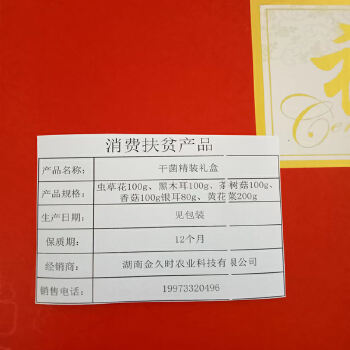 消费扶贫产品
产品名称: 干菌精装礼盒
产品规格: 虫草花100g、黑木耳100g、茶树菇100g、
香菇100g银耳80g、黄花菜200g
生产日期: 见包装
保质期: 12个月
经销商: 湖南金久时农业科技有限公司
销售电话: 19973320496